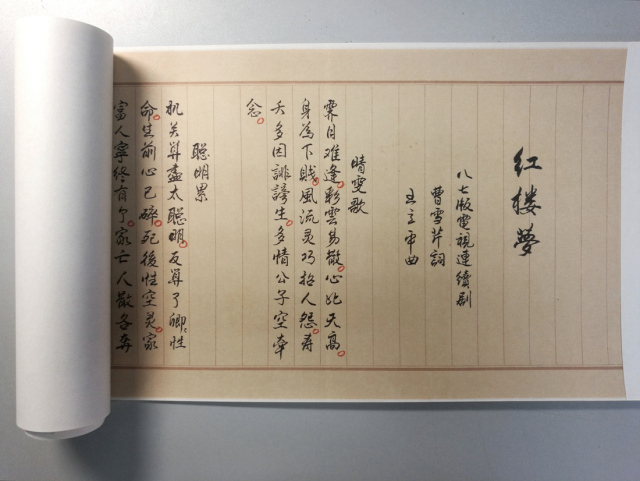 红楼夢
八七版電視連續剧
曹雪芹詞
王立平曲
晴雯歌
霁月难逢。彩雲易散。心比天高。
身為下賤。風流灵巧招人怨。寿
夭多因誹謗生。多情公子空牽
念。
聪明累
机关算盡太聪明。反算了卿々性
命。生前心已碎。死後性空灵。家
富人寧终有了。家亡人散各奔